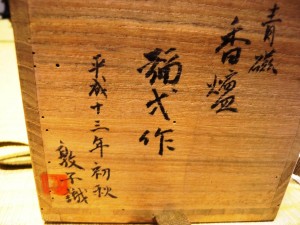 青磁
香爐
弥弌作
平成十三年初秋
敦不識